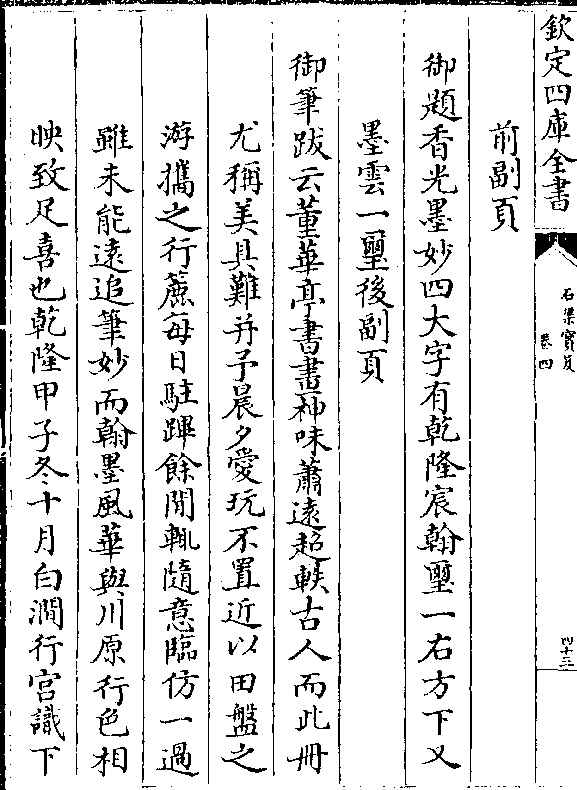 欽定四庫全書
石渠寳笈
卷四
四十三
前副頁
御題香光墨妙四大字有乾隆宸翰璽一右方下又
墨雲一璽後副頁
御筆跋云董華亭書畫神味蕭遠超軼古人而此冊
尤稱美具難并予晨夕愛玩不置近以田盤之
游攜之行麃每日駐蹕餘閒輒隨意臨仿一過
雖未能遠追筆妙而翰墨風華與川原行色相
映致足喜也乾隆甲子冬十月白澗行宮識下